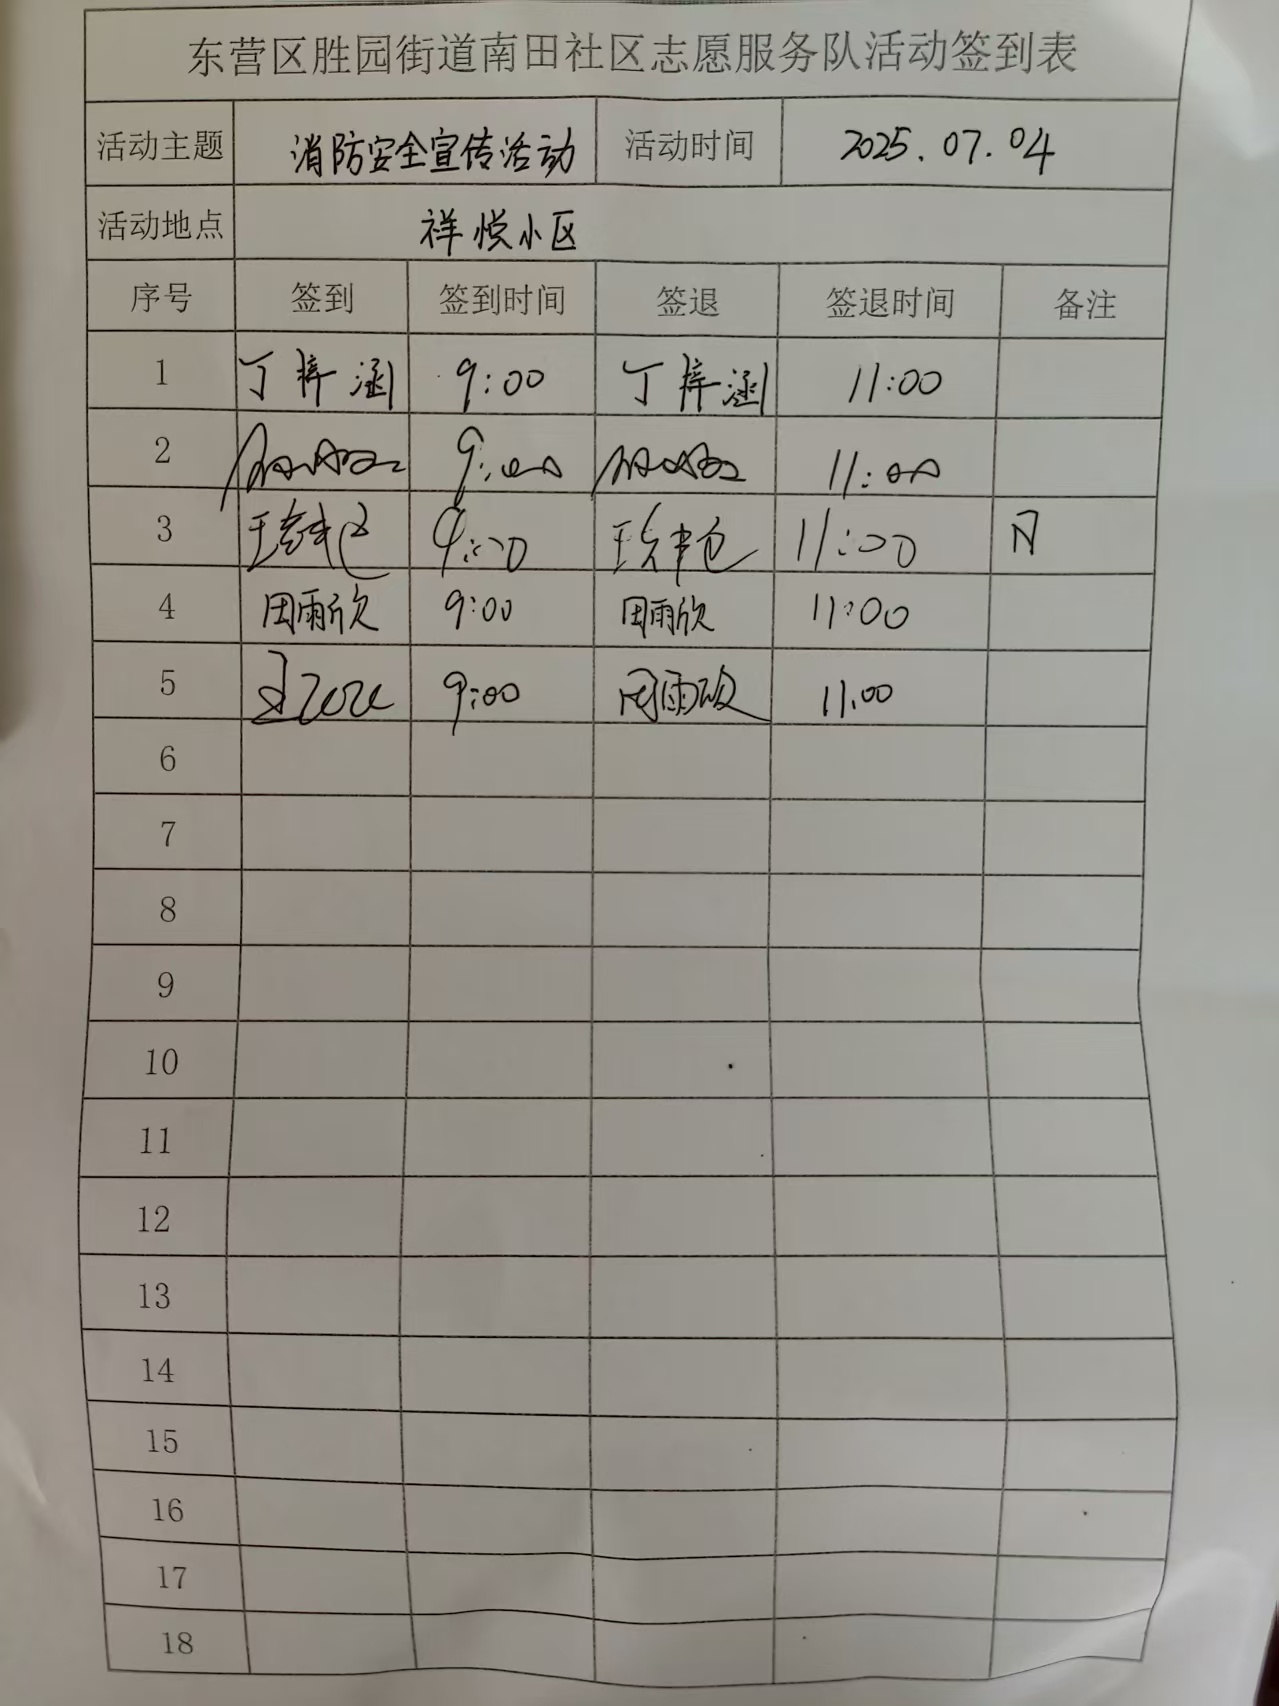 东营区胜园街道南田社区志愿服务队活动签到表
活动主题 消防安全宣传活动 活动时间 2025.07.04
活动地点 祥悦小区
序号 签到 签到时间 签退 签退时间 备注
1 丁梓涵 9:00 丁梓涵 11:00
2 9:00 11:00
3 9:00 11:00
4 田雨欣 9:00 田雨欣 11:00
5 9:00 11:00
6
7
8
9
10
11
12
13
14
15
16
17
18